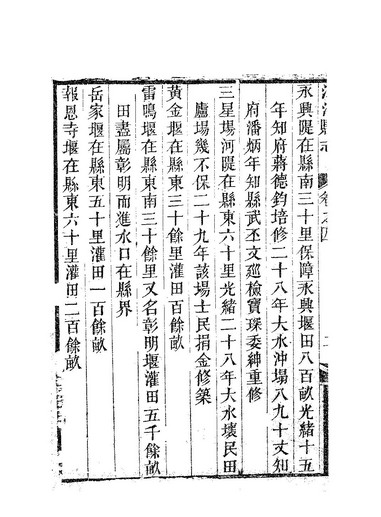 永興隄在縣南三十里保障永興堰田八百畝光緒十五
年知府蔣德鈞培修二十八年大水沖塲八九十丈知
府潘炳年知縣武丕文巡檢寶琛委紳重修
三星場河隄在縣東六十里光緒二十八年大水壞民田
廬場幾不保二十九年該場士民捐金修築
黃金堰在縣東三十餘里灌田百餘畝
雷鳴堰在縣東南三十餘里又名彰明堰灌田五千餘畝
田盡屬彰明而進水口在縣界
岳家堰在縣東五十里灌田一百餘畝
報恩寺堰在縣東六十里灌田二百餘畝